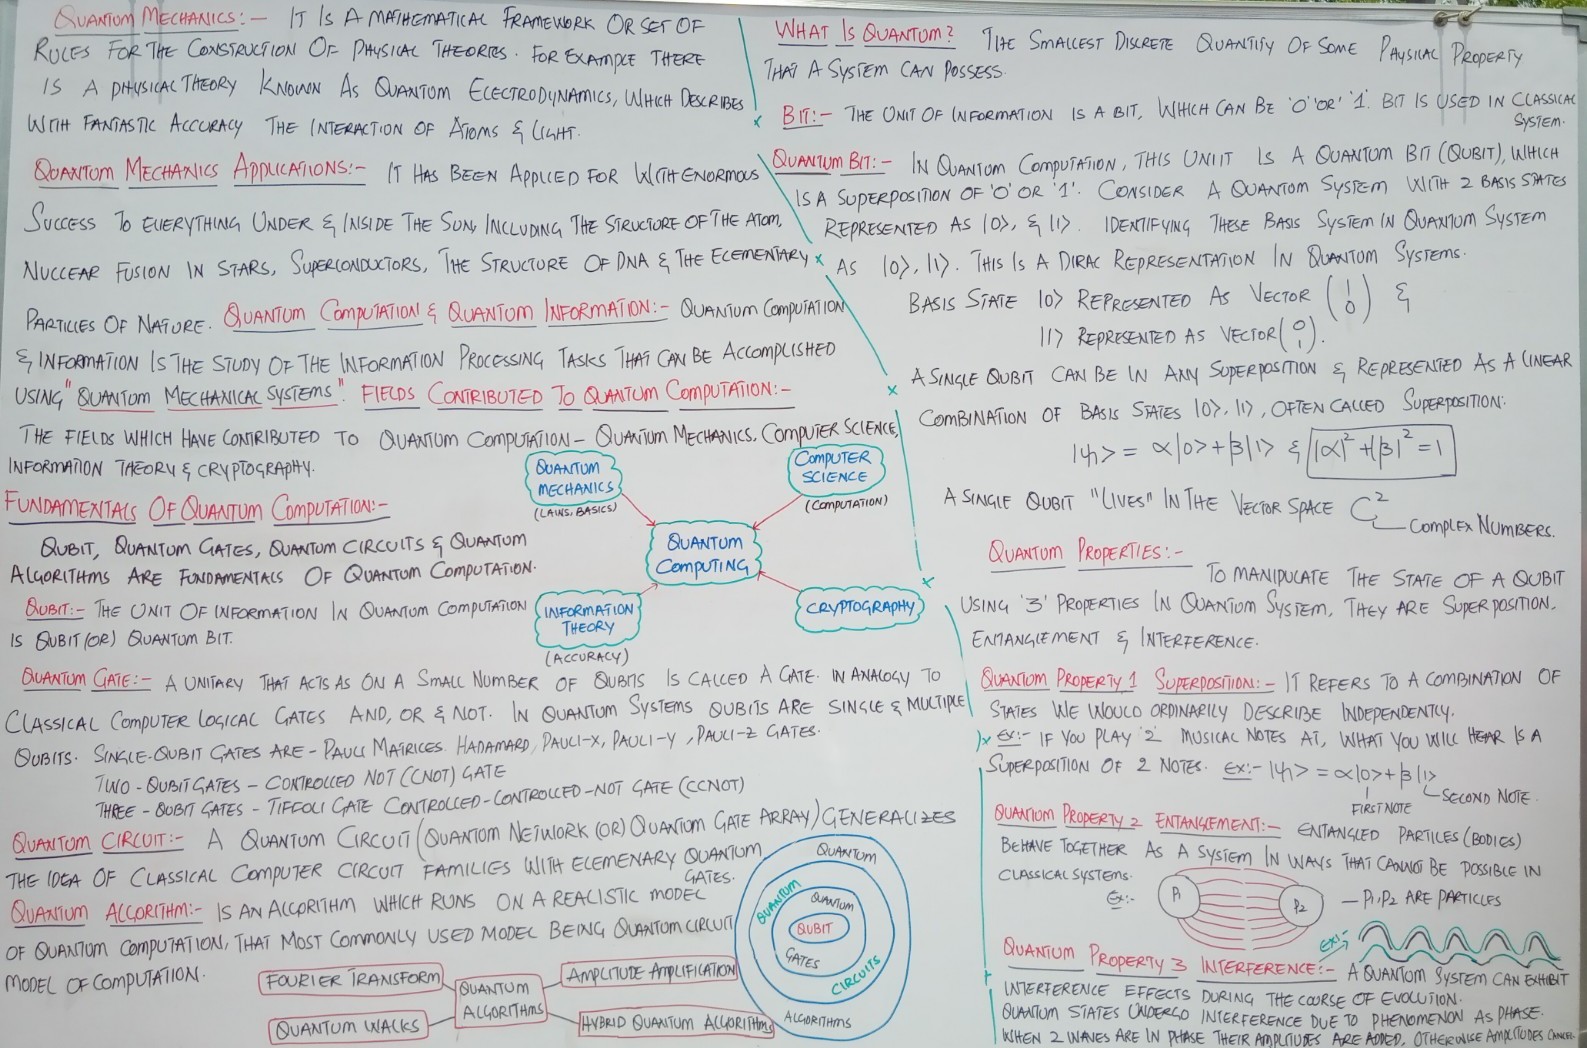 QUANTUM MECHANICS:- IT IS A MATHEMATICAL FRAMEWORK OR SET OF
RULES FOR THE CONSTRUCTION OF PHYSICAL THEORIES. FOR EXAMPLE THERE
IS A PHYSICAL THEORY KNOWN AS QUANTUM ELECTRODYNAMICS, WHICH DESCRIBES
WITH FANTASTIC ACCURACY THE INTERACTION OF ATOMS & LIGHT.
QUANTUM MECHANICS APPLICATIONS:- IT HAS BEEN APPLIED FOR WITH ENORMOUS
SUCCESS TO EVERYTHING UNDER & INSIDE THE SUN, INCLUDING THE STRUCTURE OF THE ATOM,
NUCLEAR FUSION IN STARS, SUPERCONDUCTORS, THE STRUCTURE OF DNA & THE ELEMENTARY
PARTICLES OF NATURE. QUANTUM COMPUTATION & QUANTUM INFORMATION:- QUANTUM COMPUTATION
& INFORMATION IS THE STUDY OF THE INFORMATION PROCESSING TASKS THAT CAN BE ACCOMPLISHED
USING "QUANTUM MECHANICAL SYSTEMS". FIELDS CONTRIBUTED TO QUANTUM COMPUTATION:-
THE FIELDS WHICH HAVE CONTRIBUTED TO QUANTUM COMPUTATION - QUANTUM MECHANICS, COMPUTER SCIENCE,
INFORMATION THEORY & CRYPTOGRAPHY.
QUANTUM
MECHANICS
(LAWS, BASICS)
COMPUTER
SCIENCE
(COMPUTATION)
QUANTUM
COMPUTING
INFORMATION
THEORY
(ACCURACY)
CRYPTOGRAPHY
FUNDAMENTALS OF QUANTUM COMPUTATION:-
QUBIT, QUANTUM GATES, QUANTUM CIRCUITS & QUANTUM
ALGORITHMS ARE FUNDAMENTALS OF QUANTUM COMPUTATION.
QUBIT:- THE UNIT OF INFORMATION IN QUANTUM COMPUTATION
IS QUBIT (OR) QUANTUM BIT.
QUANTUM GATE:- A UNITARY THAT ACTS AS ON A SMALL NUMBER OF QUBITS IS CALLED A GATE. IN ANALOGY TO
CLASSICAL COMPUTER LOGICAL GATES AND, OR & NOT. IN QUANTUM SYSTEMS QUBITS ARE SINGLE & MULTIPLE
QUBITS. SINGLE-QUBIT GATES ARE - PAULI MATRICES. HADAMARD, PAULI-X, PAULI-Y, PAULI-Z GATES.
TWO-QUBIT GATES - CONTROLLED NOT (CNOT) GATE
THREE-QUBIT GATES - TIFFOLI GATE CONTROLLED-CONTROLLED-NOT GATE (CCNOT)
QUANTUM CIRCUIT:- A QUANTUM CIRCUIT (QUANTUM NETWORK (OR) QUANTUM GATE ARRAY) GENERALIZES
THE IDEA OF CLASSICAL COMPUTER CIRCUIT FAMILIES WITH ELEMENARY QUANTUM
GATES.
QUANTUM ALGORITHM:- IS AN ALGORITHM WHICH RUNS ON A REALISTIC MODEL
OF QUANTUM COMPUTATION, THAT MOST COMMONLY USED MODEL BEING QUANTUM CIRCUIT
MODEL OF COMPUTATION.
FOURIER TRANSFORM
QUANTUM WALKS
QUANTUM
ALGORITHMS
AMPLITUDE AMPLIFICATION
HYBRID QUANTUM ALGORITHMS
QUANTUM
QUANTUM
QUANTUM
QUBIT
GATES
CIRCUITS
ALGORITHMS
WHAT IS QUANTUM? THE SMALLEST DISCRETE QUANTITY OF SOME PHYSICAL PROPERTY
THAT A SYSTEM CAN POSSESS.
BIT:- THE UNIT OF INFORMATION IS A BIT, WHICH CAN BE '0' 'OR' '1'. BIT IS USED IN CLASSICAL
SYSTEM.
QUANTUM BIT:- IN QUANTUM COMPUTATION, THIS UNIIT IS A QUANTUM BIT (QUBIT), WHICH
IS A SUPERPOSITION OF '0' OR '1'. CONSIDER A QUANTUM SYSTEM WITH 2 BASIS STATES
REPRESENTED AS |0>, & |1>. IDENTIFYING THESE BASIS SYSTEM IN QUANTUM SYSTEM
AS |0>, |1>. THIS IS A DIRAC REPRESENTATION IN QUANTUM SYSTEMS.
BASIS STATE |0> REPRESENTED AS VECTOR (1 0) &
|1> REPRESENTED AS VECTOR (0 1).
A SINGLE QUBIT CAN BE IN ANY SUPERPOSITION & REPRESENTED AS A LINEAR
COMBINATION OF BASIS STATES |0>, |1>, OFTEN CALLED SUPERPOSITION:
|ψ> = α|0> + β|1> & |α|² + |β|² = 1
A SINGLE QUBIT "LIVES" IN THE VECTOR SPACE C²
COMPLEX NUMBERS.
QUANTUM PROPERTIES:-
TO MANIPULATE THE STATE OF A QUBIT
USING '3' PROPERTIES IN QUANTUM SYSTEM, THEY ARE SUPERPOSITION,
ENTANGLEMENT & INTERFERENCE.
QUANTUM PROPERTY 1 SUPERPOSITION:- IT REFERS TO A COMBINATION OF
STATES WE WOULD ORDINARILY DESCRIBE INDEPENDENTLY.
EX:- IF YOU PLAY '2' MUSICAL NOTES AT, WHAT YOU WILL HEAR IS A
SUPERPOSITION OF 2 NOTES. EX:- |ψ> = α|0> + β|1>
FIRST NOTE
SECOND NOTE.
QUANTUM PROPERTY 2 ENTANGLEMENT:- ENTANGLED PARTICLES (BODIES)
BEHAVE TOGETHER AS A SYSTEM IN WAYS THAT CANNOT BE POSSIBLE IN
CLASSICAL SYSTEMS.
EX:- P1 P2 - P1, P2 ARE PARTICLES
EX:-
QUANTUM PROPERTY 3 INTERFERENCE:- A QUANTUM SYSTEM CAN EXHIBIT
INTERFERENCE EFFECTS DURING THE COURSE OF EVOLUTION.
QUANTUM STATES UNDERGO INTERFERENCE DUE TO PHENOMENON AS PHASE.
WHEN 2 WAVES ARE IN PHASE THEIR AMPLITUDES ARE ADDED, OTHERWISE AMPLITUDES CANCEL.